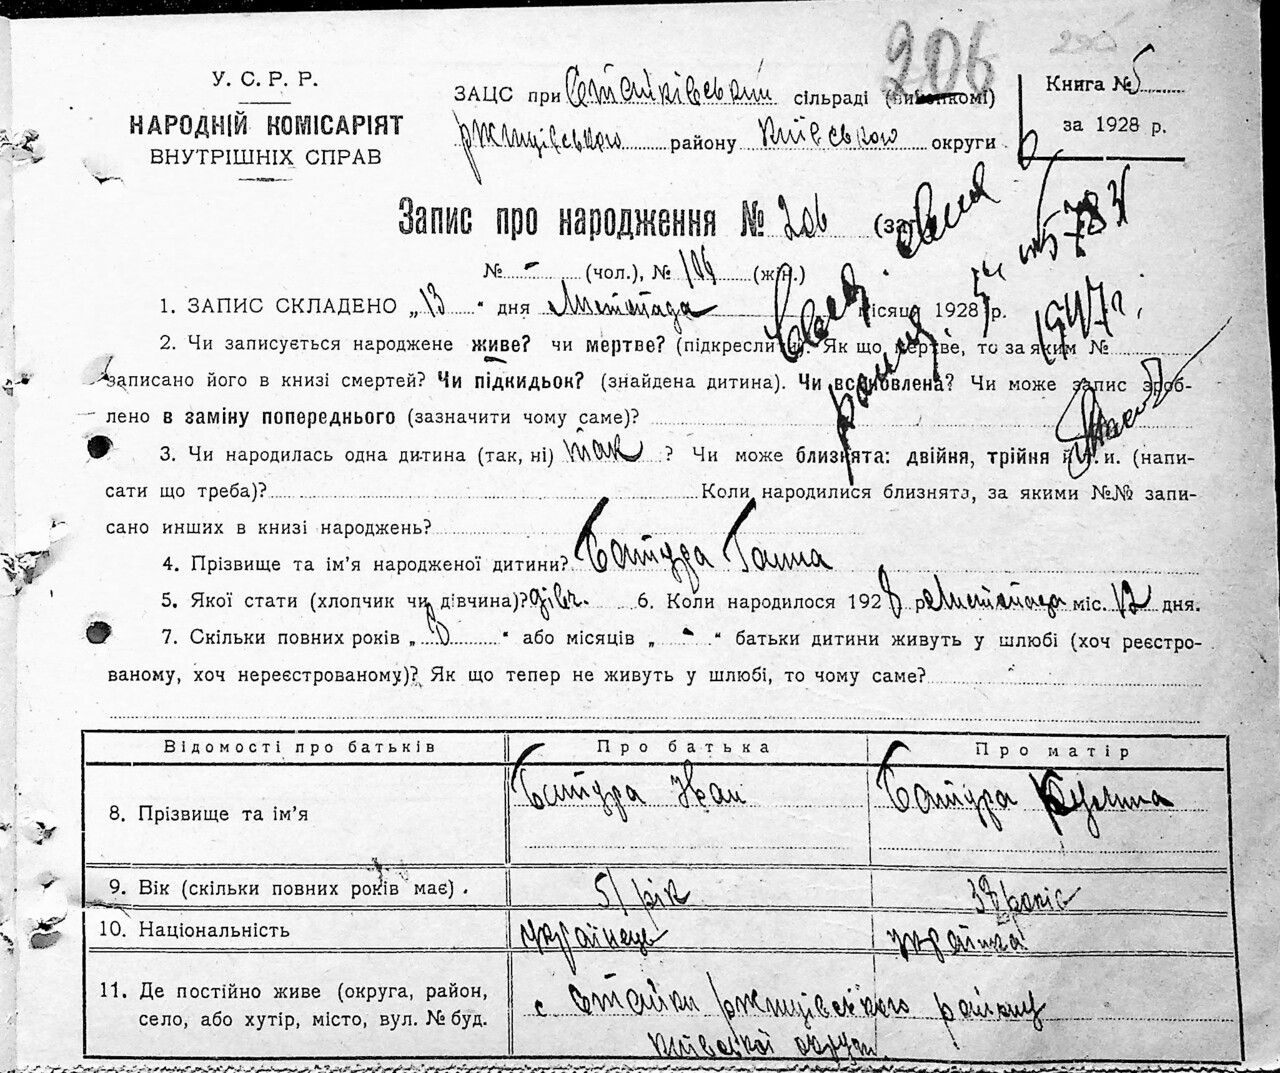 206
У. С. Р. Р.
НАРОДНІЙ КОМІСАРІЯТ
ВНУТРІШНІХ СПРАВ
ЗАЦС при Стайківський сільраді (виконкомі)
Ржищівського району Київського округи
Книга № 5
за 1928 р.
Запис про народження № 206 (за-
№ - (чол.), № 106 (жін.)
1. ЗАПИС СКЛАДЕНО „13“ дня Листопада місяця 1928 р.
2. Чи записується народжене живе? чи мертве? (підкреслити). Як що мертве, то за яким №
записано його в книзі смертей? Чи підкидьок? (знайдена дитина). Чи всиновлена? Чи може запис зроб-
лено в заміну попереднього (зазначити чому саме)?
1947 г.
3. Чи народилась одна дитина (так, ні) так ? Чи може близнята: двійня, трійня й т. и. (напи-
сати що треба)? Коли народилися близнята, за якими №№ запи-
сано инших в книзі народжень?
4. Прізвище та ім'я народженої дитини? Батура Ганна
5. Якої стати (хлопчик чи дівчина)? дівч. 6. Коли народилось 1928 р. Листопада міс. 12 дня.
7. Скільки повних років „ “ або місяців „-“ батьки дитини живуть у шлюбі (хоч реєстро-
ваному, хоч нереєстрованому)? Як що тепер не живуть у шлюбі, то чому саме?
Відомості про батьків Про батька Про матір
8. Прізвище та ім'я Батура Иван Батура
9. Вік (скільки повних років має). 51 рік 38 років
10. Національність українець українка
11. Де постійно живе (округа, район,
село, або хутір, місто, вул. № буд.
с Стайки Ржищівського району
Київської округи